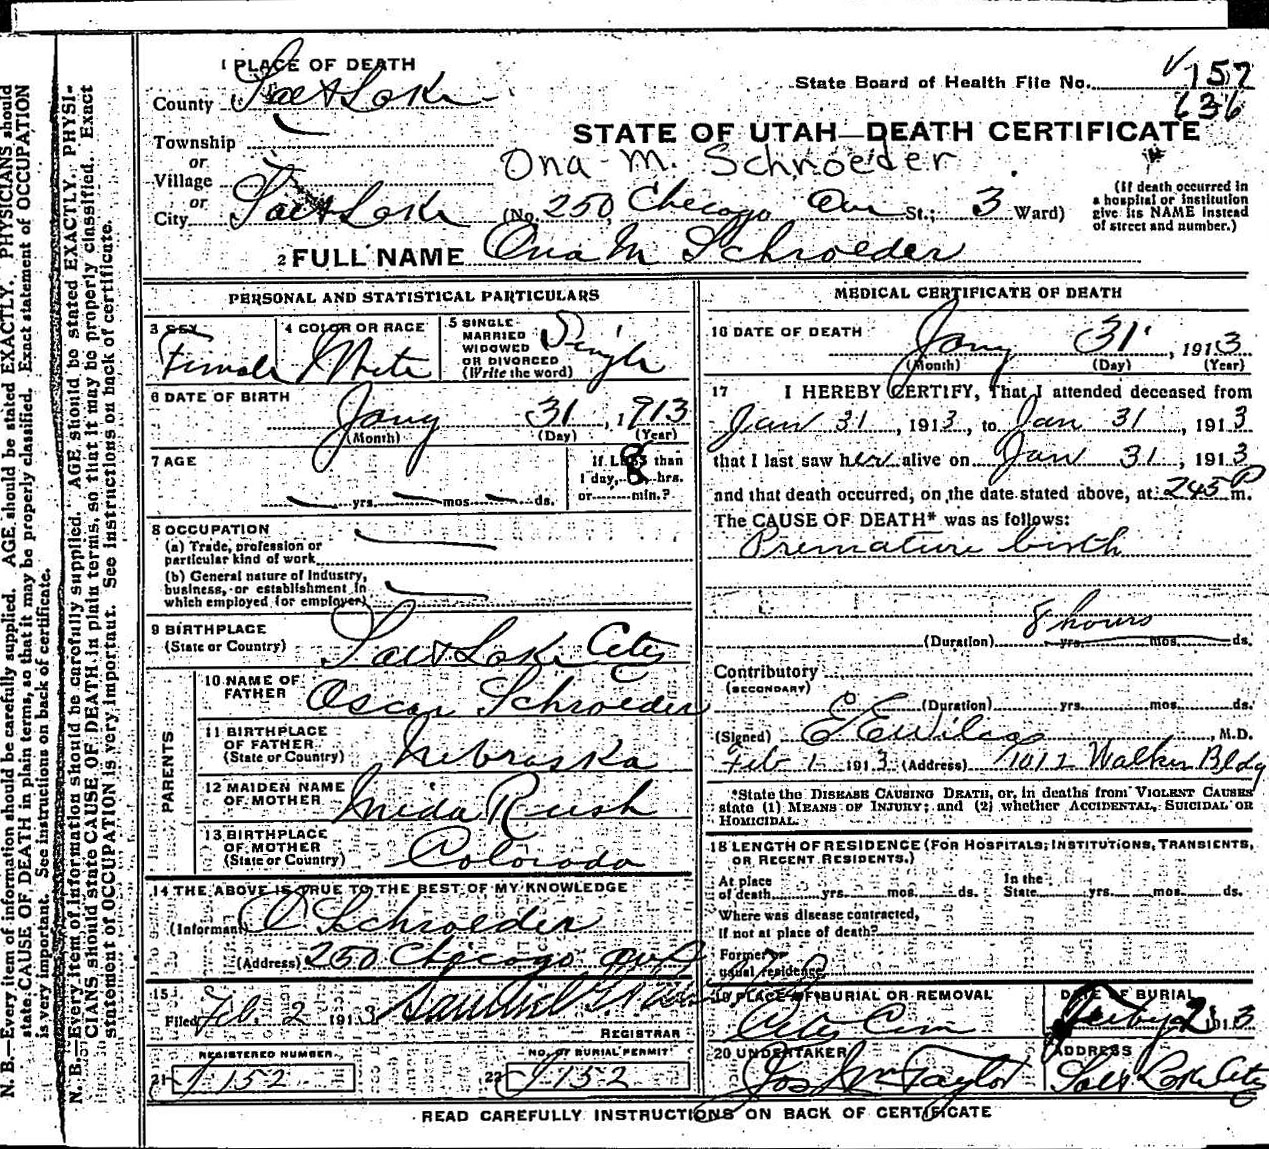 1 PLACE OF DEATH
County Salt Lake
State Board of Health File No. 152
636
Township
or
Village
or
City Salt Lake
STATE OF UTAH—DEATH CERTIFICATE
Ona M. Schroeder
(No. 250 Chicago Ave St.; 3 Ward)
(If death occurred in
a hospital or institution
give its NAME instead
of street and number.)
2 FULL NAME Ona M Schroeder
PERSONAL AND STATISTICAL PARTICULARS
3 SEX
Female
4 COLOR OR RACE
White
5 SINGLE
MARRIED
WIDOWED
OR DIVORCED
(Write the word)
Single
6 DATE OF BIRTH
Jany 31, 1913
(Month) (Day) (Year)
7 AGE
yrs. mos. ds.
If LESS than
1 day, 8 hrs.
or min.?
8 OCCUPATION
(a) Trade, profession or
particular kind of work
(b) General nature of industry,
business, or establishment in
which employed (or employer)
9 BIRTHPLACE
(State or Country) Salt Lake City
PARENTS
10 NAME OF
FATHER Oscar Schroeder
11 BIRTHPLACE
OF FATHER
(State or Country) Nebraska
12 MAIDEN NAME
OF MOTHER Meda Rush
13 BIRTHPLACE
OF MOTHER
(State or Country) Colorado
14 THE ABOVE IS TRUE TO THE BEST OF MY KNOWLEDGE
(Informant) O Schroeder
(Address) 250 Chicago ave
15
Filed Feb. 2 1913
REGISTRAR
REGISTERED NUMBER
21 152
NO. OF BURIAL PERMIT
22 152
MEDICAL CERTIFICATE OF DEATH
16 DATE OF DEATH
Jany 31, 1913
(Month) (Day) (Year)
17 I HEREBY CERTIFY, That I attended deceased from
Jan 31, 1913, to Jan 31, 1913
that I last saw her alive on Jan 31, 1913
and that death occurred, on the date stated above, at 245 P m.
The CAUSE OF DEATH* was as follows:
Premature birth
8 hours
(Duration) yrs. mos. ds.
Contributory
(SECONDARY)
(Duration) yrs. mos. ds.
(Signed) E E Wilcox, M.D.
Feb 1 1913 (Address) 1012 Walker Bldg
*State the DISEASE CAUSING DEATH, or, in deaths from VIOLENT CAUSES
state (1) MEANS OF INJURY; and (2) whether ACCIDENTAL, SUICIDAL OR
HOMICIDAL.
18 LENGTH OF RESIDENCE (FOR HOSPITALS, INSTITUTIONS, TRANSIENTS,
OR RECENT RESIDENTS.)
At place
of death yrs. mos. ds.
In the
State yrs. mos. ds.
Where was disease contracted,
If not at place of death?
Former or
usual residence
19 PLACE OF BURIAL OR REMOVAL
City Cem
DATE OF BURIAL
2 1913
20 UNDERTAKER
Jos Wm Taylor
ADDRESS
Salt Lake City
READ CAREFULLY INSTRUCTIONS ON BACK OF CERTIFICATE
N. B.—Every item of information should be carefully supplied. AGE should be stated EXACTLY. PHYSICIANS should
state CAUSE OF DEATH in plain terms, so that it may be properly classified. Exact statement of OCCUPATION
is very important. See instructions on back of certificate.
N. B.—Every item of information should be carefully supplied. AGE should be stated EXACTLY. PHYSI-
CIANS should state CAUSE OF DEATH in plain terms, so that it may be properly classified. Exact
statement of OCCUPATION is very important. See instructions on back of certificate.